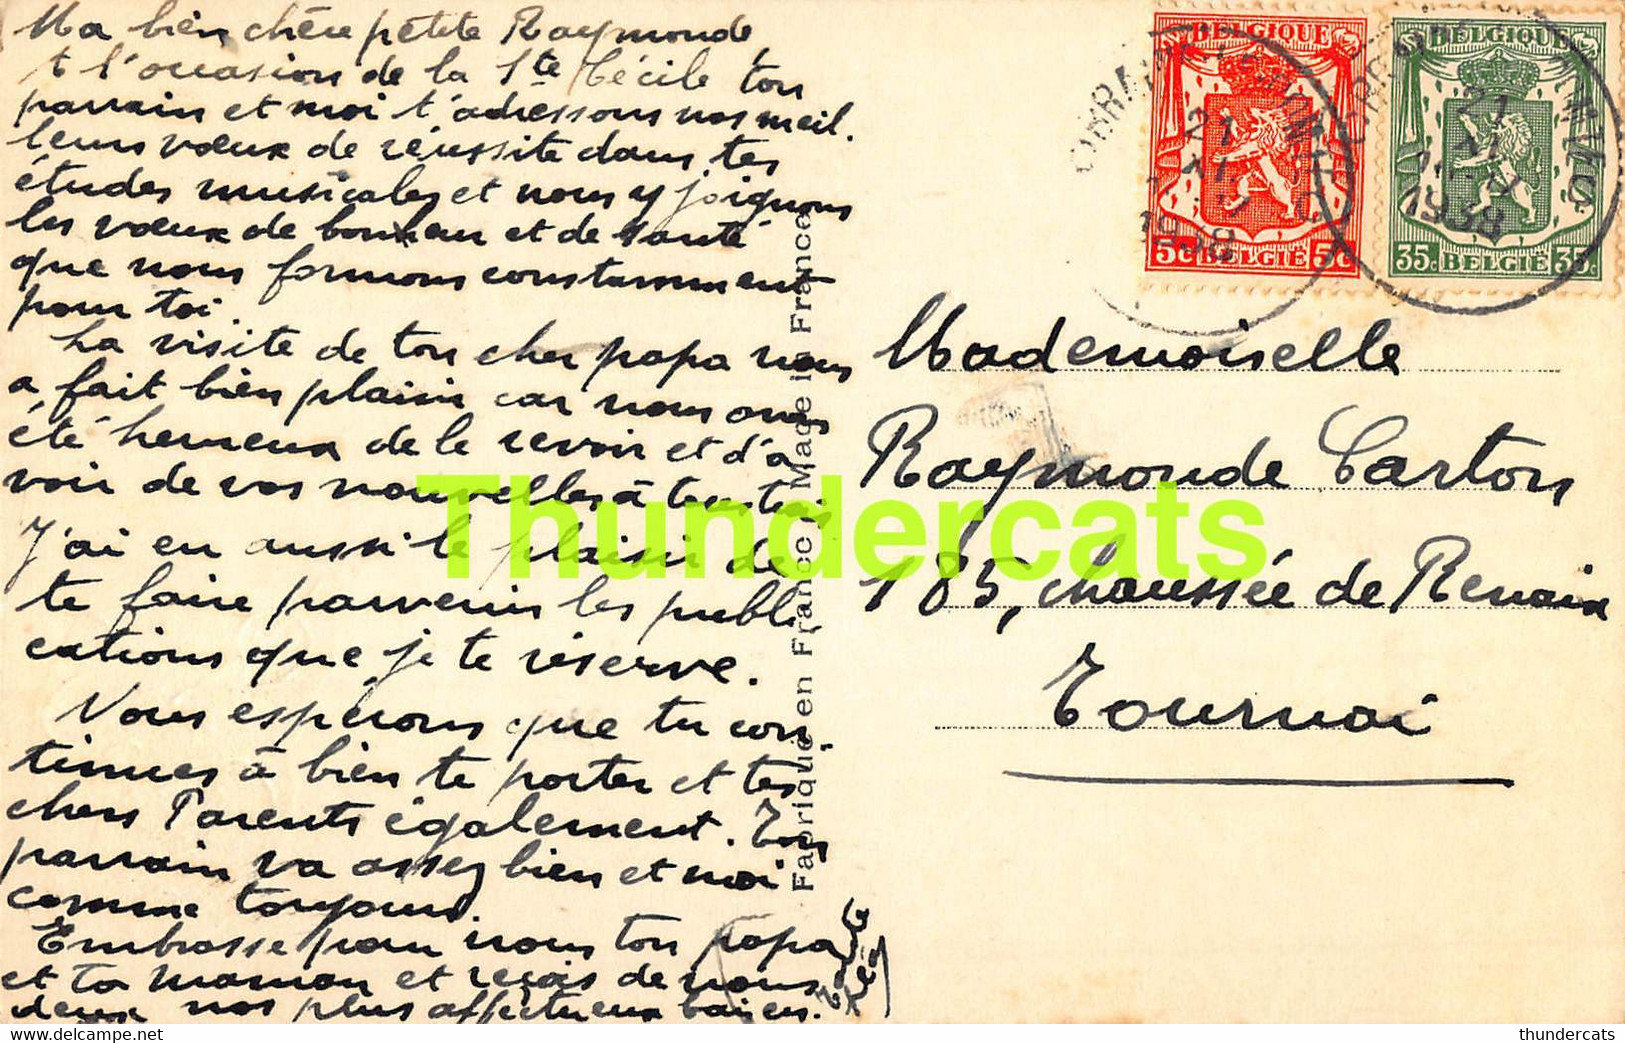 Ma bien chère petite Raymonde,
A l'occasion de la Ste Cécile ton
parrain et moi t'adressons nos meil.
leurs vœux de réussite dans tes
études musicales et nous y joignons
les vœux de bonheur et de santé
que nous formons constamment
pour toi.
La visite de ton cher papa nous
a fait bien plaisir car nous avons
été heureux de le revoir et d'a
voir de vos nouvelles à tous trois
J'ai eu aussi le plaisir de
te faire parvenir les publi
cations que je te réserve.
Nous espérons que tu con
tinues à bien te porter et tes
chers Parents également. Ton
parrain va assez bien et moi
comme toujours.
Embrasse pour nous ton papa
et ta maman et reçois de nous
deux nos plus affectueux baisers.
Fabriqué en France Made in France
BELGIQUE
21
1938
5c BELGIE 5c
BELGIQUE
21
1938
35c BELGIE 35c
Mademoiselle
Raymonde Carton
185, chaussée de Renaix
Tournai
Thundercats
thundercats